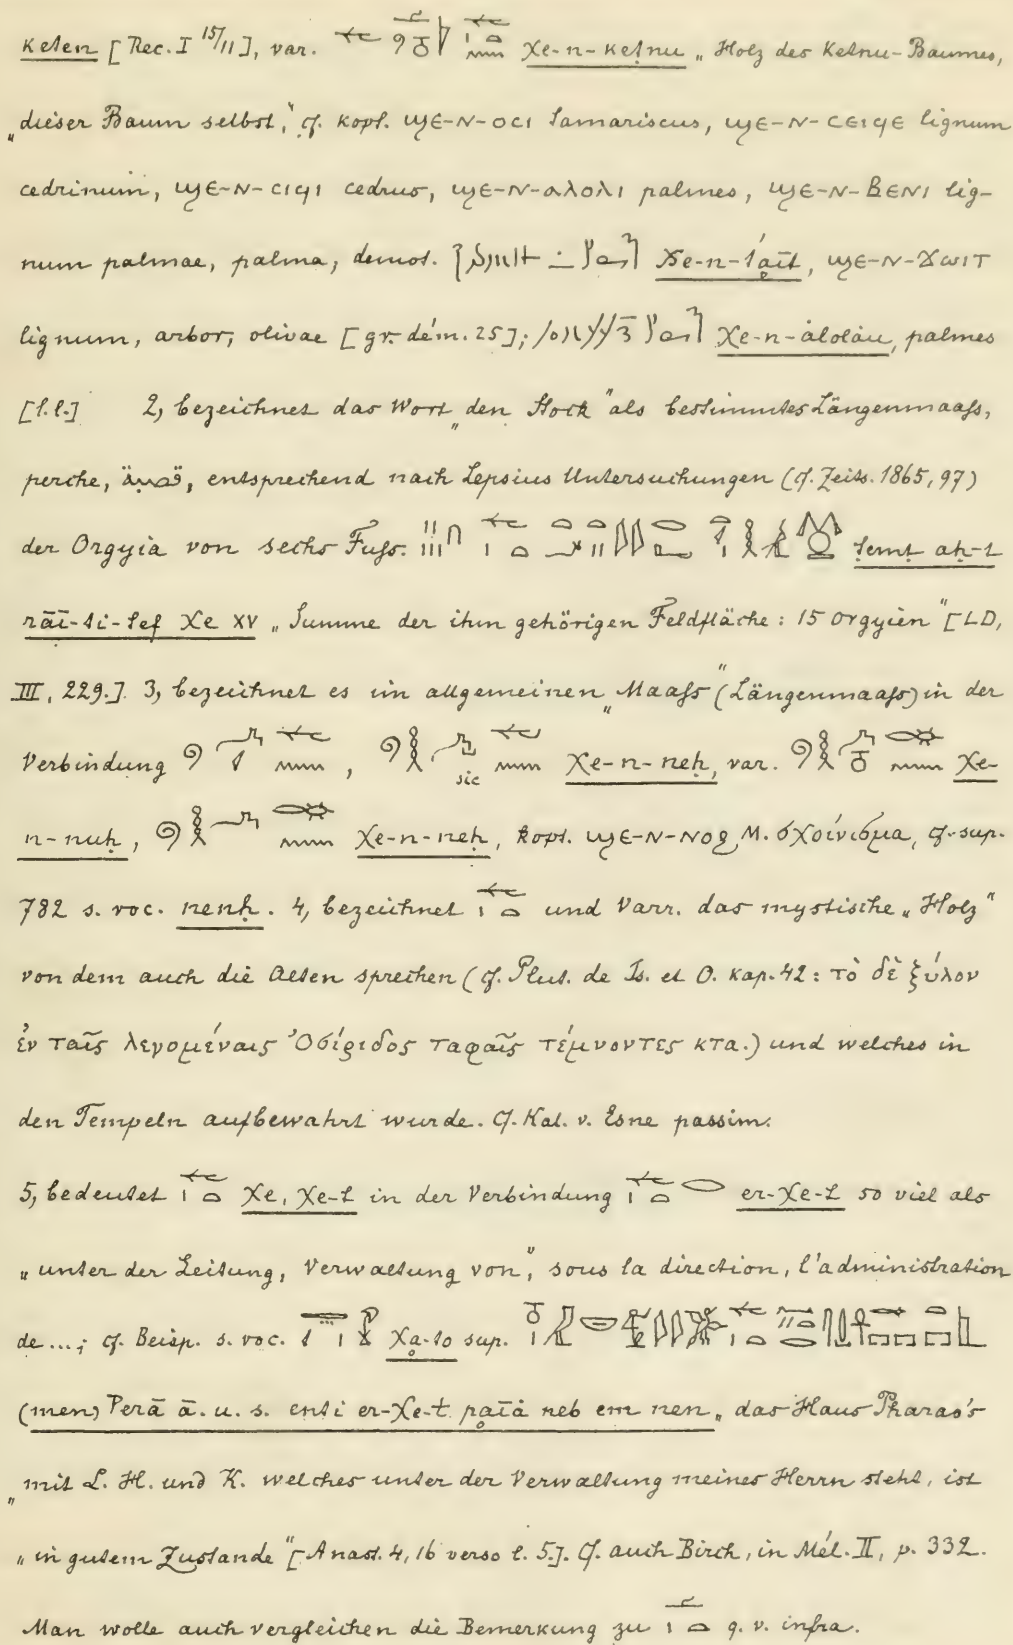 keten [Rec. I 15/11], var. χe-n-ketnu „Holz des Ketnu-Baumes,
„dieser Baum selbst," cf. kopt. ϣⲉ-ⲛ-ⲟⲥⲓ tamariscus, ϣⲉ-ⲛ-ⲥⲉⲓϥⲉ lignum
cedrinum, ϣⲉ-ⲛ-ⲥⲓϥⲓ cedrus, ϣⲉ-ⲛ-ⲁⲗⲟⲗⲓ palmes, ϣⲉ-ⲛ-ⲃⲉⲛⲓ lig-
num palmae, palma, demot. χe-n-t́ait, ϣⲉ-ⲛ-ϫⲱⲓⲧ
lignum, arbor, olivae [gr. dém. 25]; χe-n-áloláu, palmes
[l.l.] 2, bezeichnet das Wort „den Stock" als bestimmtes Längenmaaſs,
perche, قصبة, entsprechend nach Lepsius Untersuchungen (cf. Zeits. 1865, 97)
der Orgyia von sechs Fuſs. temt aḥ-t
rāi-ti-tef χe XV „Summe der ihm gehörigen Feldfläche: 15 Orgyien" [LD,
III, 229.] 3, bezeichnet es im allgemeinen „Maaſs" (Längenmaaſs) in der
Verbindung , sic χe-n-neḥ, var. χe-
n-nuḥ, χe-n-neḥ, kopt. ϣⲉ-ⲛ-ⲛⲟϩ, M. σχοίνισμα, cf. sup.
782 s. voc. nenḥ. 4, bezeichnet und Varr. das mystische „Holz"
von dem auch die Alten sprechen (cf. Plut. de Is. et O. kap. 42: τὸ δὲ ξύλον
ἐν ταῖς λεγομέναις Ὀσίριδος ταφαῖς τέμνοντες κτλ.) und welches in
den Tempeln aufbewahrt wurde. Cf. Kal. v. Esne passim.
5, bedeutet χe, χe-t in der Verbindung er-χe-t so viel als
„unter der Leitung, Verwaltung von", sous la direction, l'administration
de ...; cf. Beisp. s. voc. χa-to sup.
(men) Perā ā. u. s. enti er-χe-t paiá neb em nen „das Haus Pharao's
„mit L. H. und K. welches unter der Verwaltung meines Herrn steht, ist
„in gutem Zustande" [Anast. 4, 16 verso l. 5.]. Cf. auch Birch, in Mél. II, p. 332.
Man wolle auch vergleichen die Bemerkung zu q. v. infra.